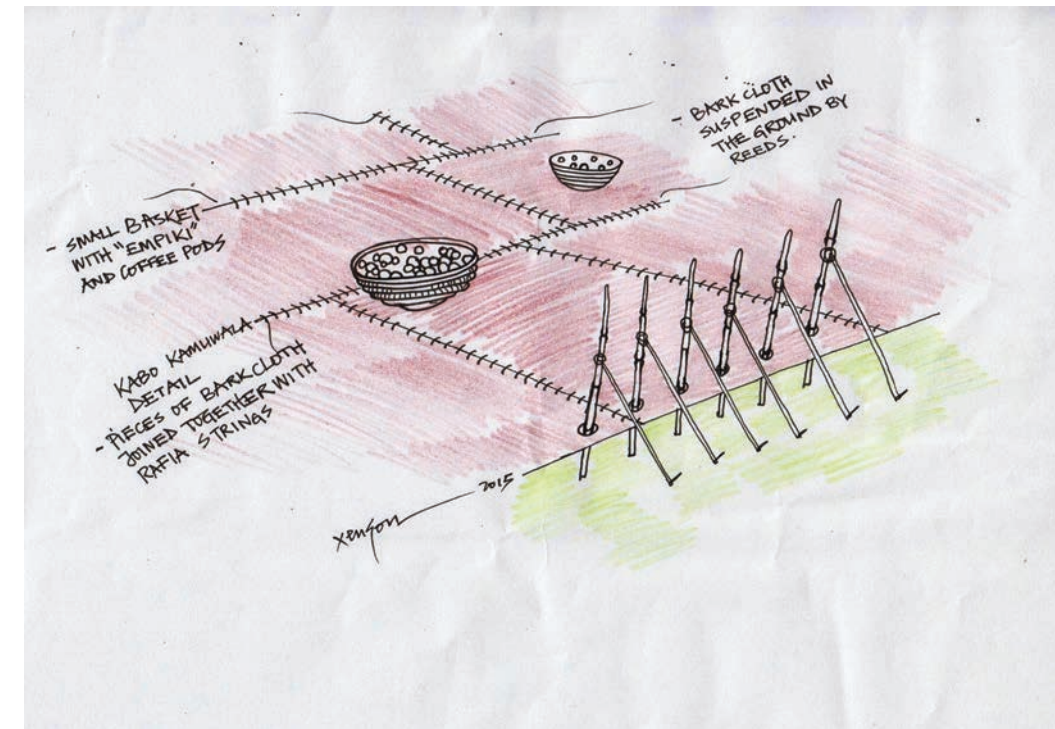 - BARK CLOTH
SUSPENDED IN
THE GROUND BY
REEDS.
- SMALL BASKET
WITH "EMPIKI"
AND COFFEE PODS
KABO KAMUWALA
DETAIL
- PIECES OF BARKCLOTH
JOINED TOGETHER WITH
RAFIA STRINGS
xenson 2015